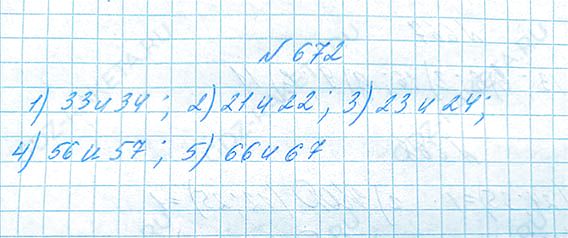 № 672
1) 33 и 34 ; 2) 21 и 22 ; 3) 23 и 24 ;
4) 56 и 57 ; 5) 66 и 67